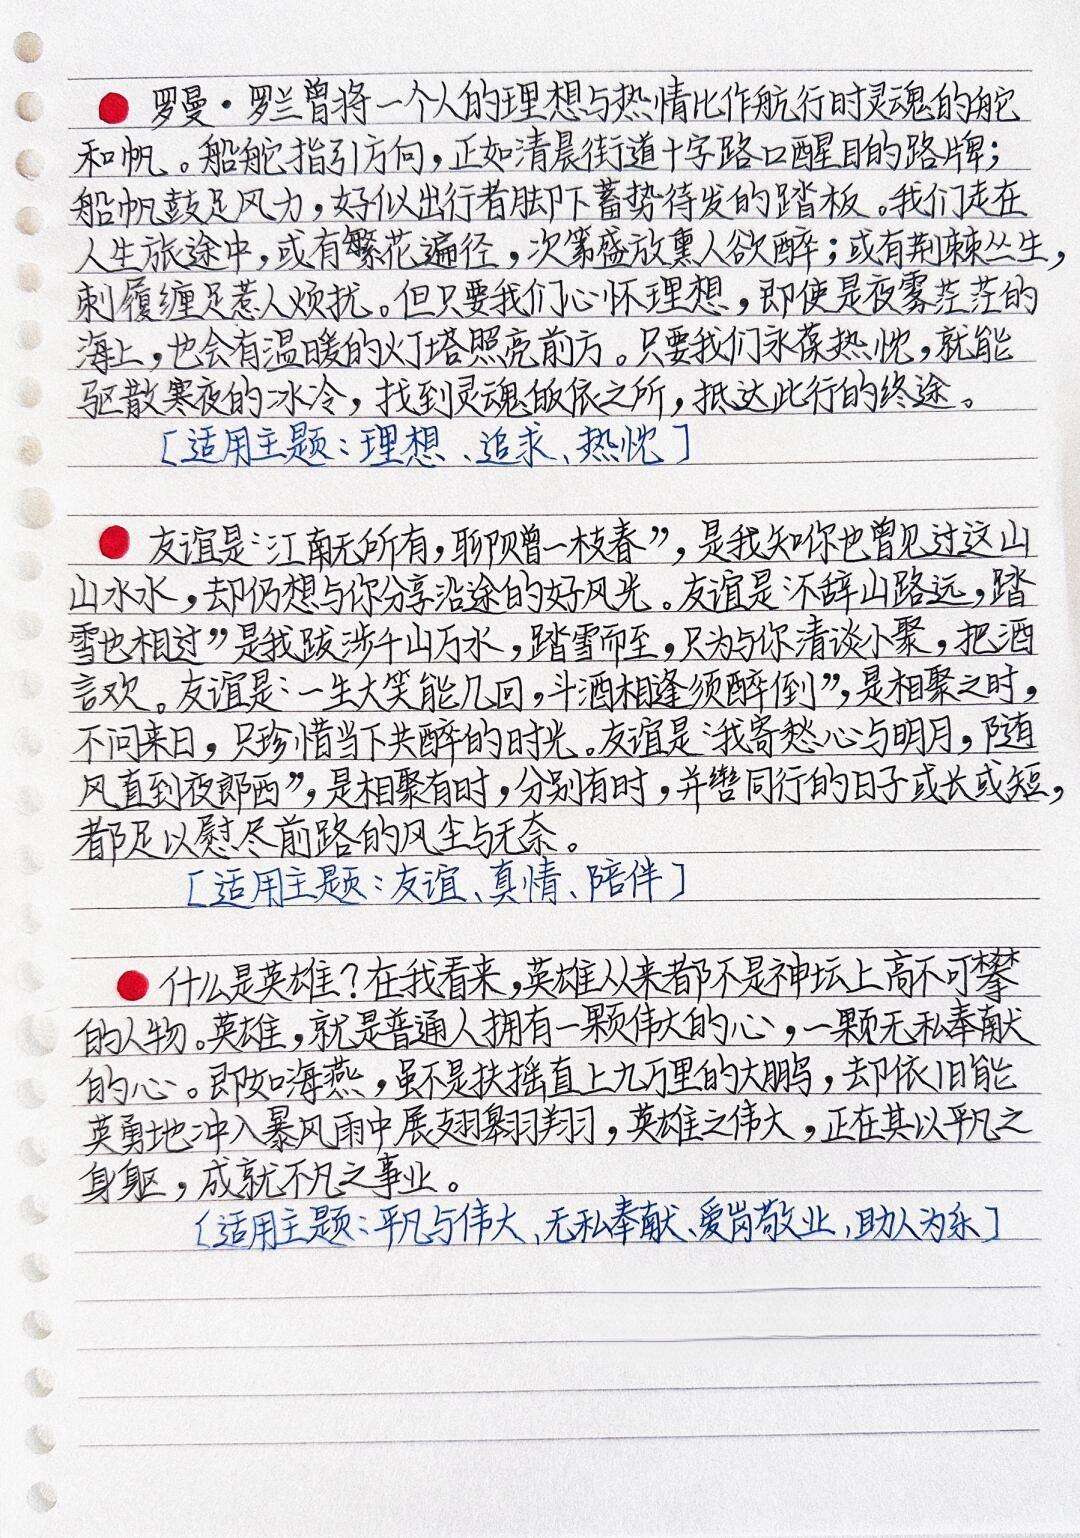 罗曼·罗兰曾将一个人的理想与热情比作航行时灵魂的舵
和帆。船舵指引方向，正如清晨街道十字路口醒目的路牌；
船帆鼓足风力，好似出行者脚下蓄势待发的踏板。我们走在
人生旅途中，或有繁花遍径，次第盛放熏人欲醉；或有荆棘丛生，
刺履缠足惹人烦扰。但只要我们心怀理想，即使是夜雾茫茫的
海上，也会有温暖的灯塔照亮前方。只要我们永葆热忱，就能
驱散寒夜的冰冷，找到灵魂皈依之所，抵达此行的终途。
［适用主题：理想、追求、热忱］
友谊是“江南无所有，聊赠一枝春”，是我知你也曾见过这山
山水水，却仍想与你分享沿途的好风光。友谊是“不辞山路远，踏
雪也相过”是我跋涉千山万水，踏雪而至，只为与你清谈小聚，把酒
言欢。友谊是“一生大笑能几回，斗酒相逢须醉倒”，是相聚之时，
不问来日，只珍惜当下共醉的时光。友谊是“我寄愁心与明月，随
风直到夜郎西”，是相聚有时，分别有时，并辔同行的日子或长或短，
都足以慰尽前路的风尘与无奈。
［适用主题：友谊、真情、陪伴］
什么是英雄？在我看来，英雄从来都不是神坛上高不可攀
的人物。英雄，就是普通人拥有一颗伟大的心，一颗无私奉献
的心。即如海燕，虽不是扶摇直上九万里的大鹏，却依旧能
英勇地冲入暴风雨中展翅翱翔，英雄之伟大，正在其以平凡之
身躯，成就不凡之事业。
［适用主题：平凡与伟大、无私奉献、爱岗敬业、助人为乐］